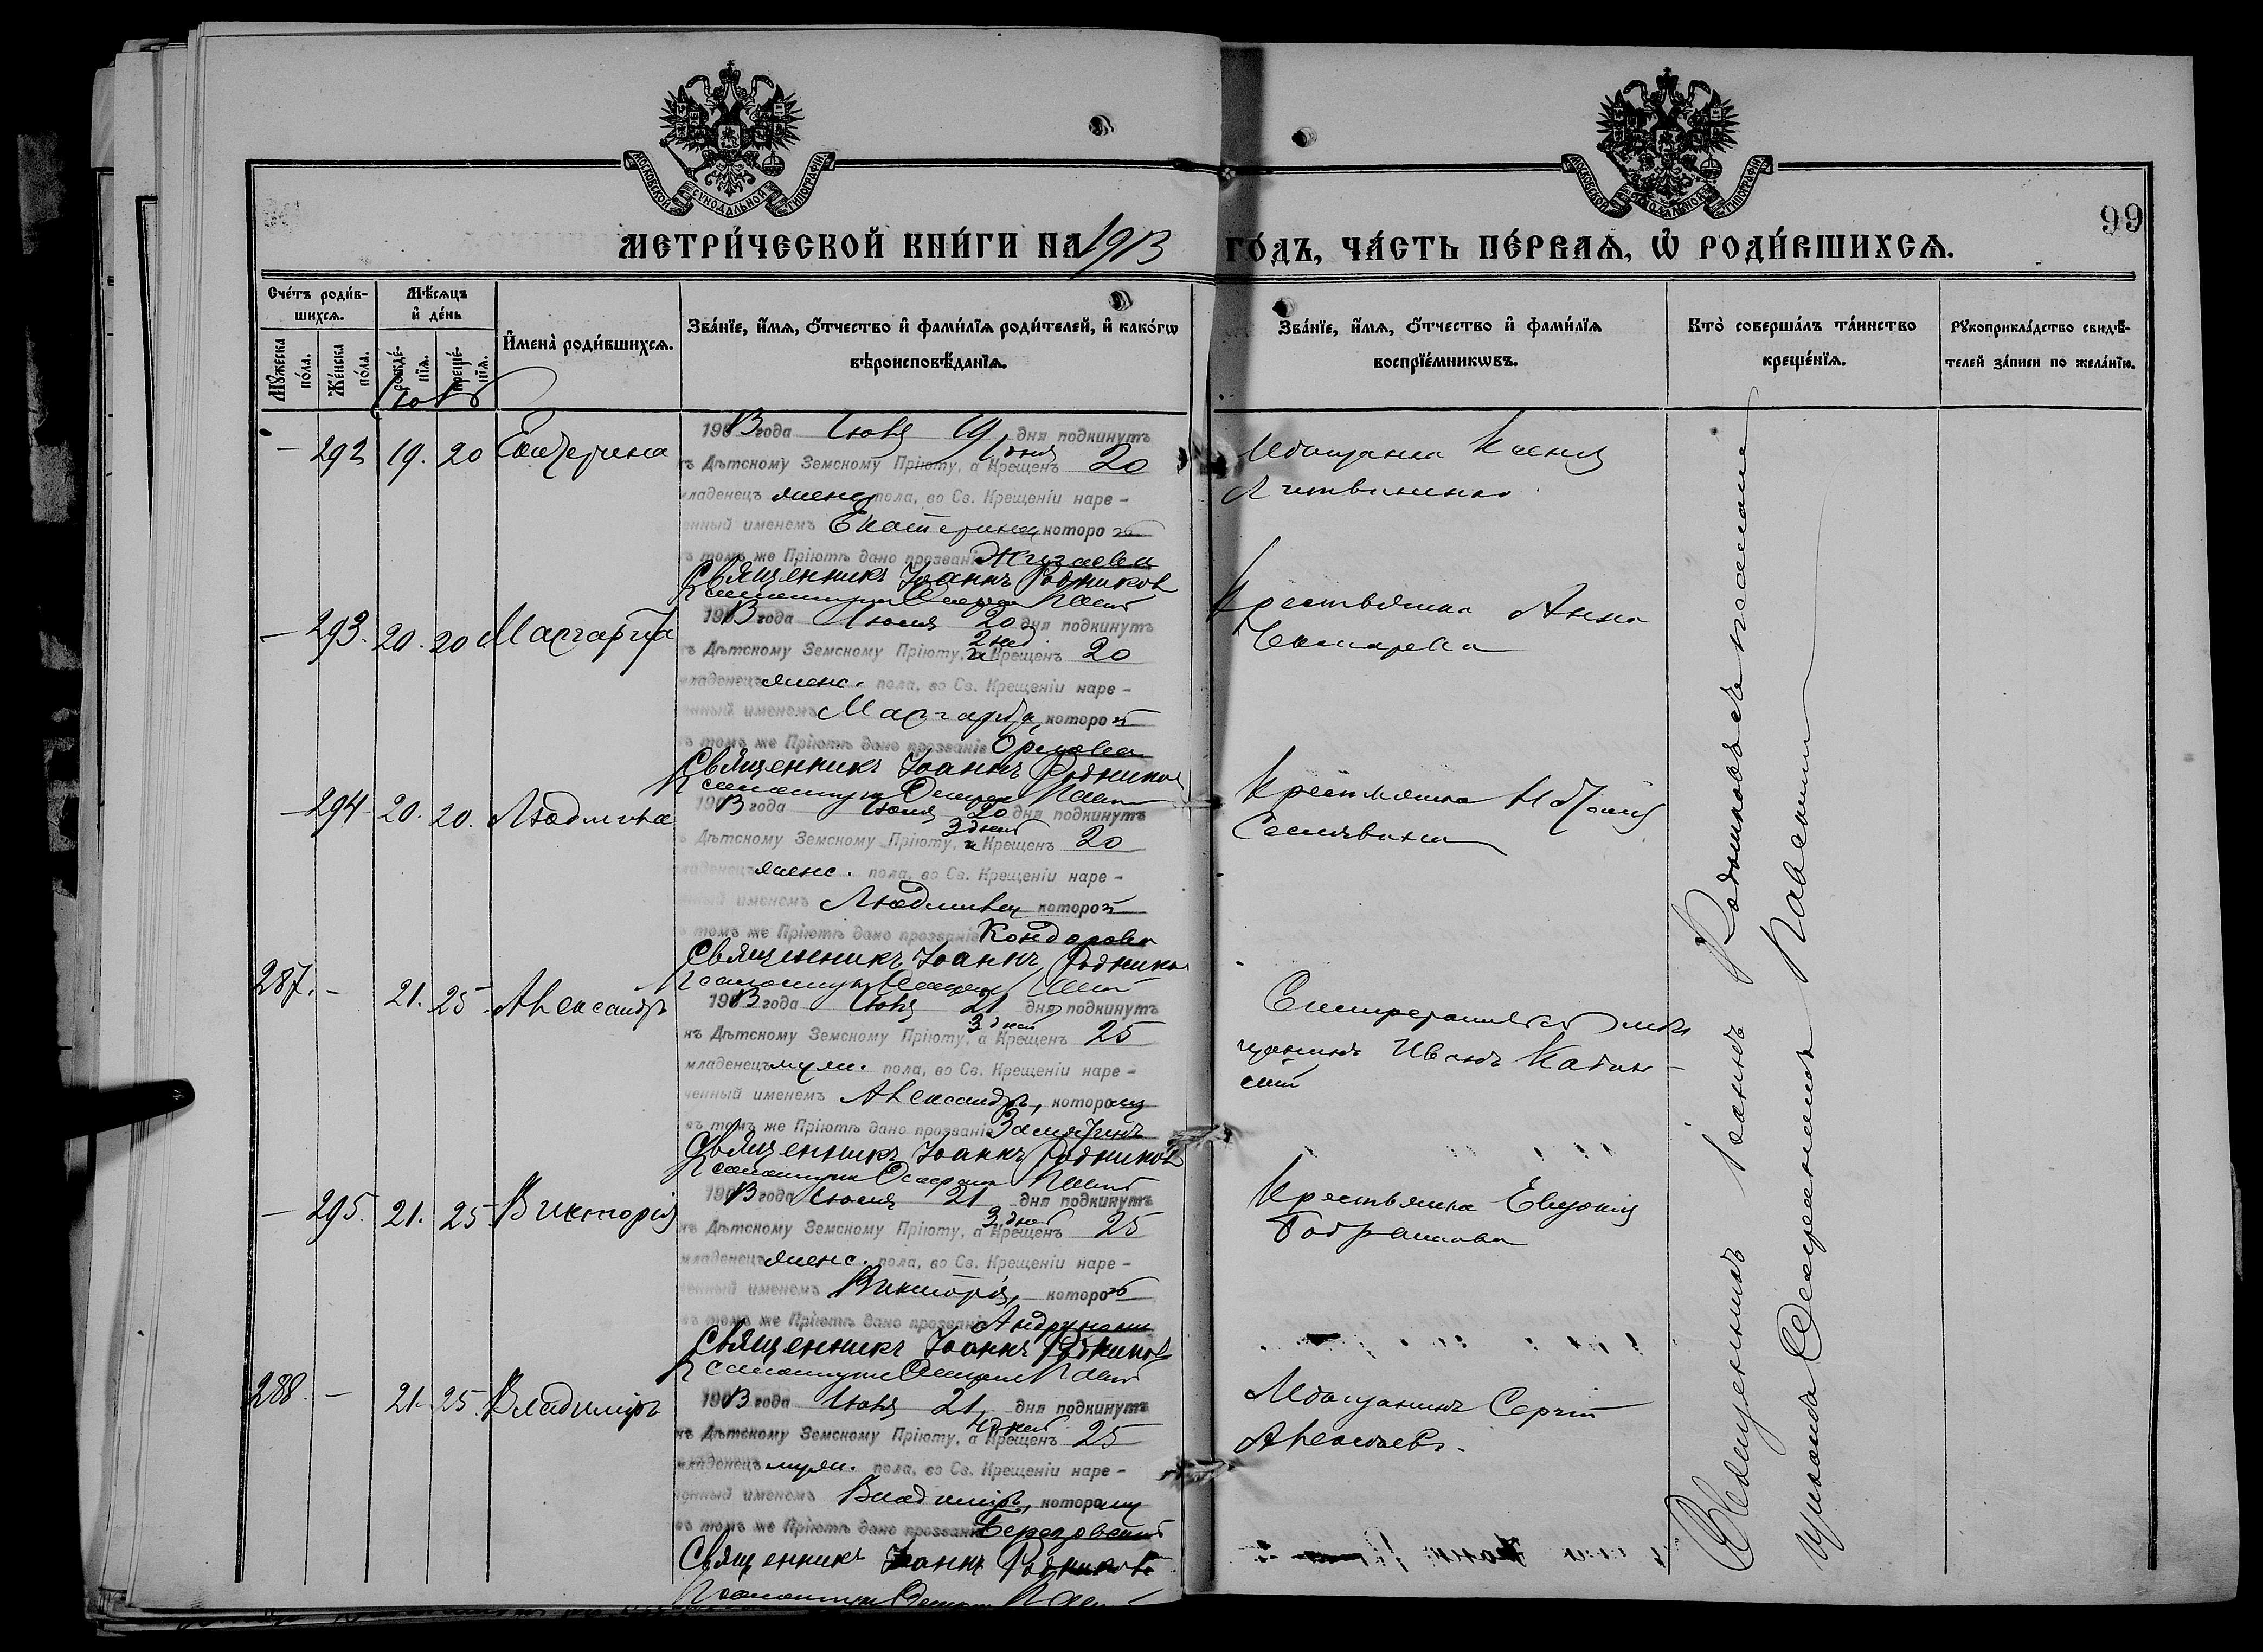 МОСКОВСКОЙ СУНОДАЛЬНОЙ ТИПОГРАФІИ
МОСКОВСКОЙ СУНОДАЛЬНОЙ ТИПОГРАФІИ
99
МЕТРИ́ЧЕСКОЙ КНИ́ГИ НА 1913 ГО́ДЪ, ЧА́СТЬ ПЕ́РВАѦ, Ѡ҆ РОДИ́ВШИХСѦ.
Сче́тъ роди́в-
шихсѧ.
Мꙋ́жеска по́ла.
Же́нска по́ла.
Мѣ́сѧцъ
и҆ де́нь
рожде́-
нїѧ.
креще́-
нїѧ.
И҆мена̀ роди́вшихсѧ.
Зва́нїе, и҆́мѧ, ѻ҆́тчество и҆ фами́лїѧ роди́телей, и҆ како́гѡ
вѣроисповѣ́данїѧ.
Зва́нїе, и҆́мѧ, ѻ҆́тчество и҆ фами́лїѧ
воспрїе́мникѡвъ.
Кто̀ соверша́лъ та́инство
креще́нїѧ.
Рꙋкоприкла́дство свидѣ́-
телей за́писи по жела́нїю.
Іюнь
— 292 19. 20 Екатерина
1913 года Іюня 19 дня подкинутъ
1 дня
къ Дѣтскому Земскому Пріюту, а Крещенъ 20
младенецъ женс. пола, во Св. Крещеніи наре-
ченный именемъ Екатерина, которой
въ томъ же Пріютѣ дано прозваніе
Священникъ Іоаннъ Родников
Мѣщанка Ксенія
Литвиненко
— 293. 20. 20 Маргарита
1913 года Іюня 20 дня подкинутъ
2 дней
къ Дѣтскому Земскому Пріюту, и Крещенъ 20
младенецъ женс. пола, во Св. Крещеніи наре-
ченный именемъ Маргарита, которой
въ томъ же Пріютѣ дано прозваніе Орлова
Священникъ Іоаннъ Родников
Крестьянка Анна
— 294 20. 20. Людмила
1913 года Іюня 20 дня подкинутъ
3 дней
къ Дѣтскому Земскому Пріюту, и Крещенъ 20
младенецъ женс. пола, во Св. Крещеніи наре-
ченный именемъ Людмила, которой
въ томъ же Пріютѣ дано прозваніе Кондорова
Священникъ Іоаннъ Родников
Крестьянка Наталія
287. — 21. 25. Александръ
1913 года Іюня 21 дня подкинутъ
3 дней
къ Дѣтскому Земскому Пріюту, а Крещенъ 25
младенецъ муж. пола, во Св. Крещеніи наре-
ченный именемъ Александръ, которому
въ томъ же Пріютѣ дано прозваніе Замятинъ
Священникъ Іоаннъ Родников
Симферопольскій мѣ
щанинъ Иванъ Кабан-
скій
— 295. 21. 25 Викторія
1913 года Іюня 21 дня подкинутъ
3 дней
къ Дѣтскому Земскому Пріюту, а Крещенъ 25
младенецъ женс. пола, во Св. Крещеніи наре-
ченный именемъ Викторія, которой
въ томъ же Пріютѣ дано прозваніе
Священникъ Іоаннъ Родников
Крестьянка Евдокія
288. — 21. 25. Владиміръ
1913 года Іюня 21 дня подкинутъ
4 дней
къ Дѣтскому Земскому Пріюту, а Крещенъ 25
младенецъ муж. пола, во Св. Крещеніи наре-
ченный именемъ Владиміръ, которому
въ томъ же Пріютѣ дано прозваніе Березовскій
Священникъ Іоаннъ Родниковъ
Мѣщанинъ Сергій
Священникъ Іоаннъ Родниковъ